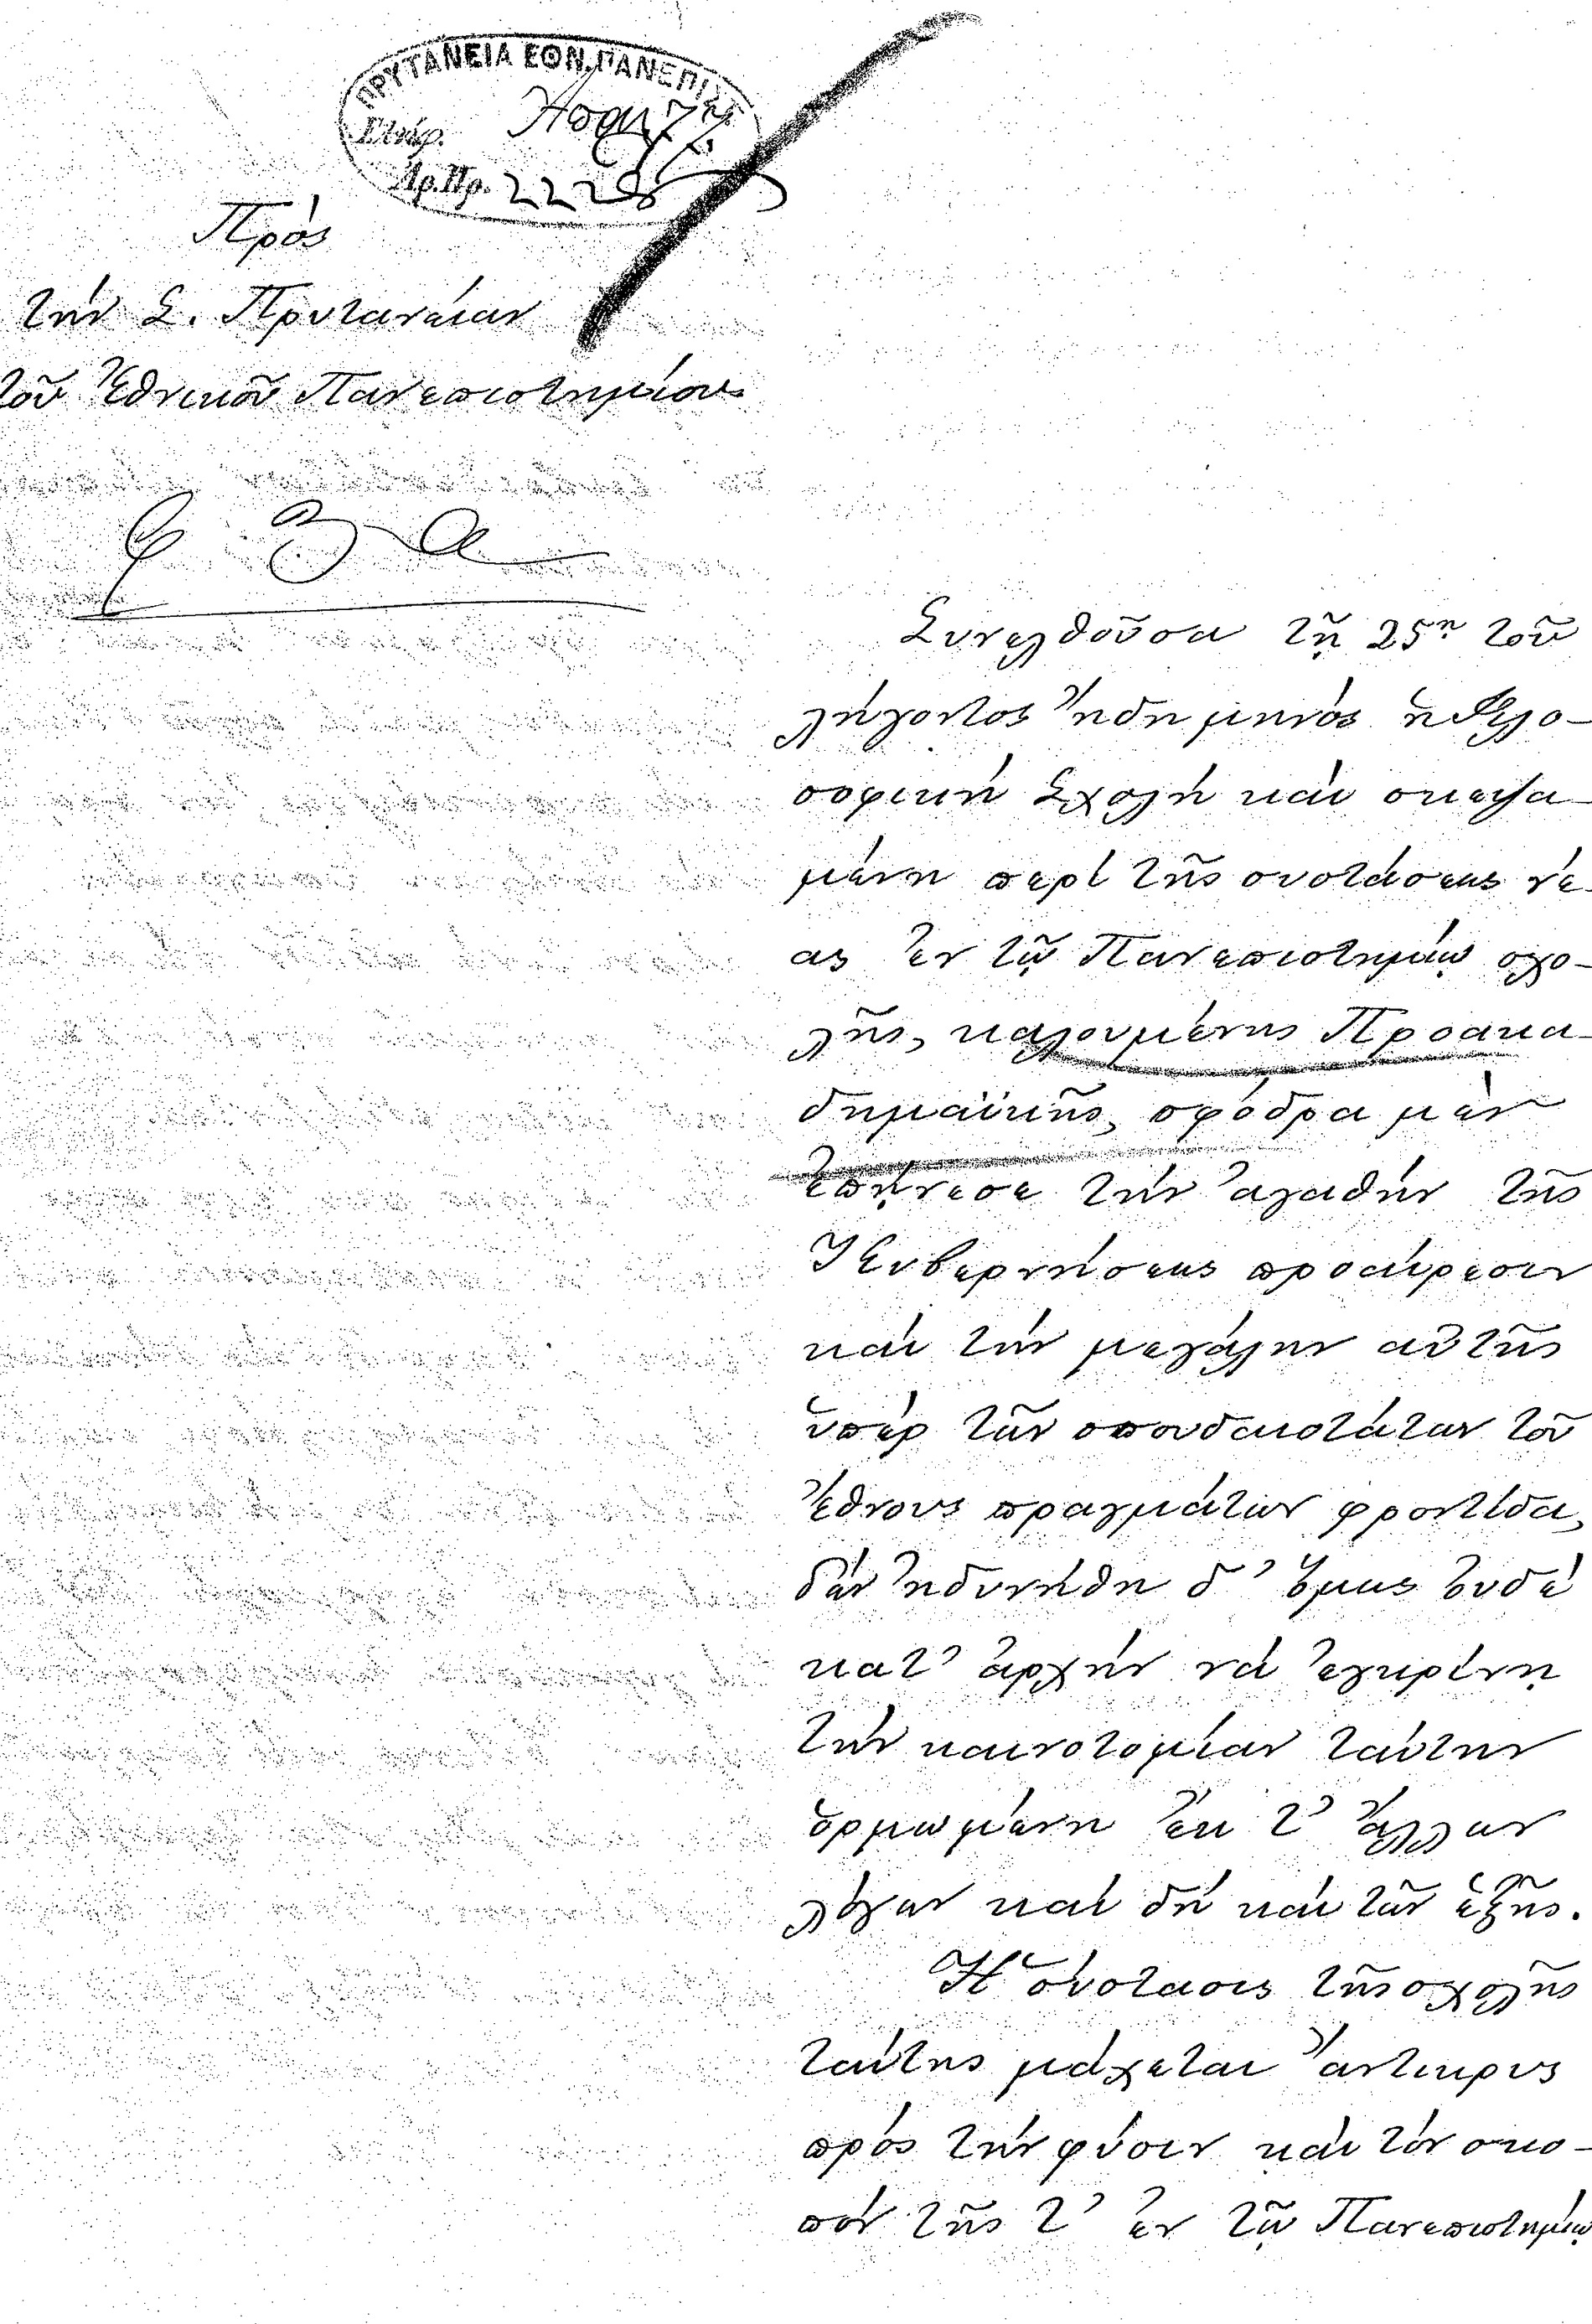 ΠΡΥΤΑΝΕΙΑ ΕΘΝ. ΠΑΝΕΠΙΣ
Ἀρ. Πρ. 2228
Πρὸς
τὴν Σ. Πρυτανείαν
τοῦ Ἐθνικοῦ Πανεπιστημίου
Συνελθοῦσα τῇ 25ῃ τοῦ
λήγοντος ἤδη μηνὸς ἡ Φιλο-
σοφικὴ Σχολὴ καὶ σκεψα-
μένη περὶ τῆς συστάσεως νέ-
ας ἐν τῷ Πανεπιστημίῳ σχο-
λῆς, καλουμένης Προακα-
δημαϊκῆς, σφόδρα μὲν
ἐπῄνεσε τὴν ἀγαθὴν τῆς
Κυβερνήσεως προαίρεσιν
καὶ τὴν μεγάλην αὐτῆς
ὑπὲρ τῶν σπουδαιοτάτων τοῦ
ἔθνους πραγμάτων φροντίδα,
δὲν ἠδυνήθη δ' ὅμως οὐδὲ
κατ' ἀρχὴν νὰ ἐγκρίνῃ
τὴν καινοτομίαν ταύτην
ὁρμωμένη ἔκ τ' ἄλλων
λόγων καὶ δὴ καὶ τῶν ἑξῆς.
Ἡ σύστασις τῆς σχολῆς
ταύτης μάχεται ἄντικρυς
πρὸς τὴν φύσιν καὶ τὸν σκο-
πὸν τῆς τ' ἐν τῷ Πανεπιστημίῳ